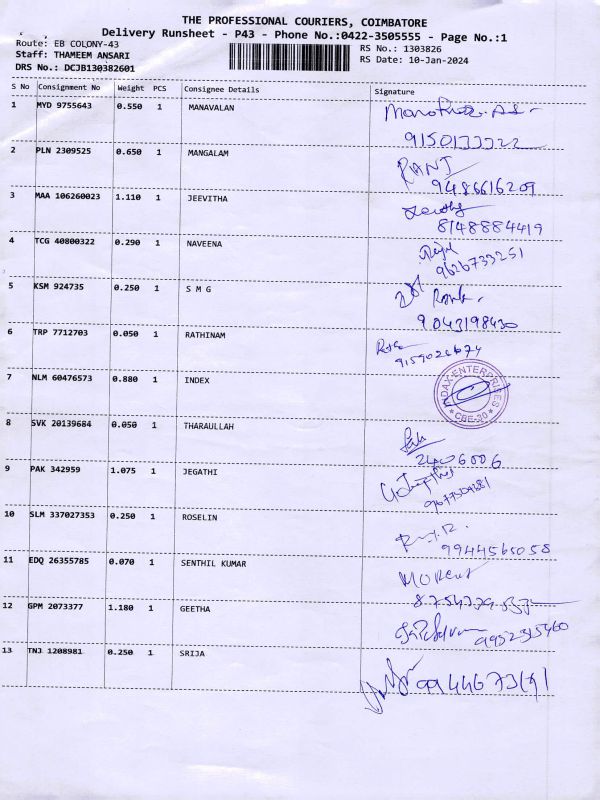 THE PROFESSIONAL COURIERS, COIMBATORE
Delivery Runsheet - P43 - Phone No.:0422-3505555 - Page No.:1
Route: EB COLONY-43
RS No.: 1303826
Staff: THAMEEM ANSARI
RS Date: 10-Jan-2024
DRS No.: DCJB130382601
S No Consignment No Weight PCS Consignee Details Signature
1 MYD 9755643 0.550 1 MANAVALAN
9150133322
2 PLN 2309525 0.650 1 MANGALAM RANJ
9486616209
3 MAA 106260023 1.110 1 JEEVITHA
8148884419
4 TCG 40800322 0.290 1 NAVEENA
9626733251
5 KSM 924735 0.250 1 S M G
9043198430
6 TRP 7712703 0.050 1 RATHINAM
7 NLM 60476573 0.880 1 INDEX ADAX ENTERPRISES
CBE-30
8 SVK 20139684 0.050 1 THARAULLAH
2406006
9 PAK 342959 1.075 1 JEGATHI
10 SLM 337027353 0.250 1 ROSELIN
9944565058
11 EDQ 26355785 0.070 1 SENTHIL KUMAR
12 GPM 2073377 1.180 1 GEETHA
9952315460
13 TNJ 1208981 0.250 1 SRIJA